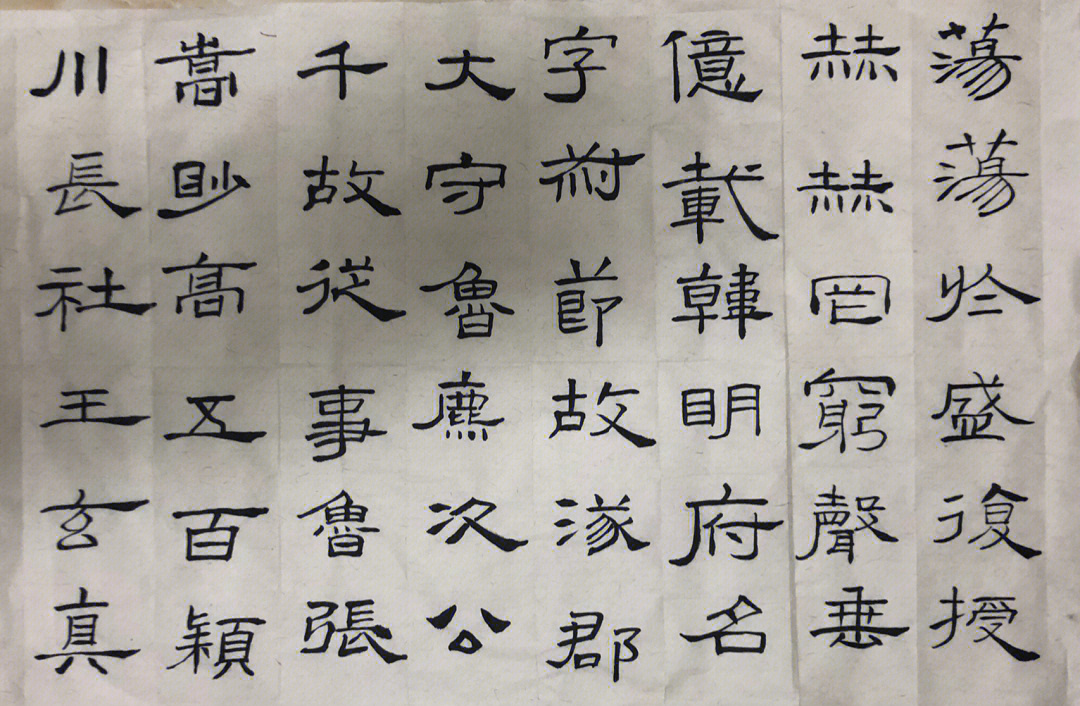 蕩蕩於盛復授
赫赫罔窮聲垂
億載韓明府名
字叔節故涿郡
大守魯麃次公
千故從事魯張
嵩眇高五百穎
川長社王玄真